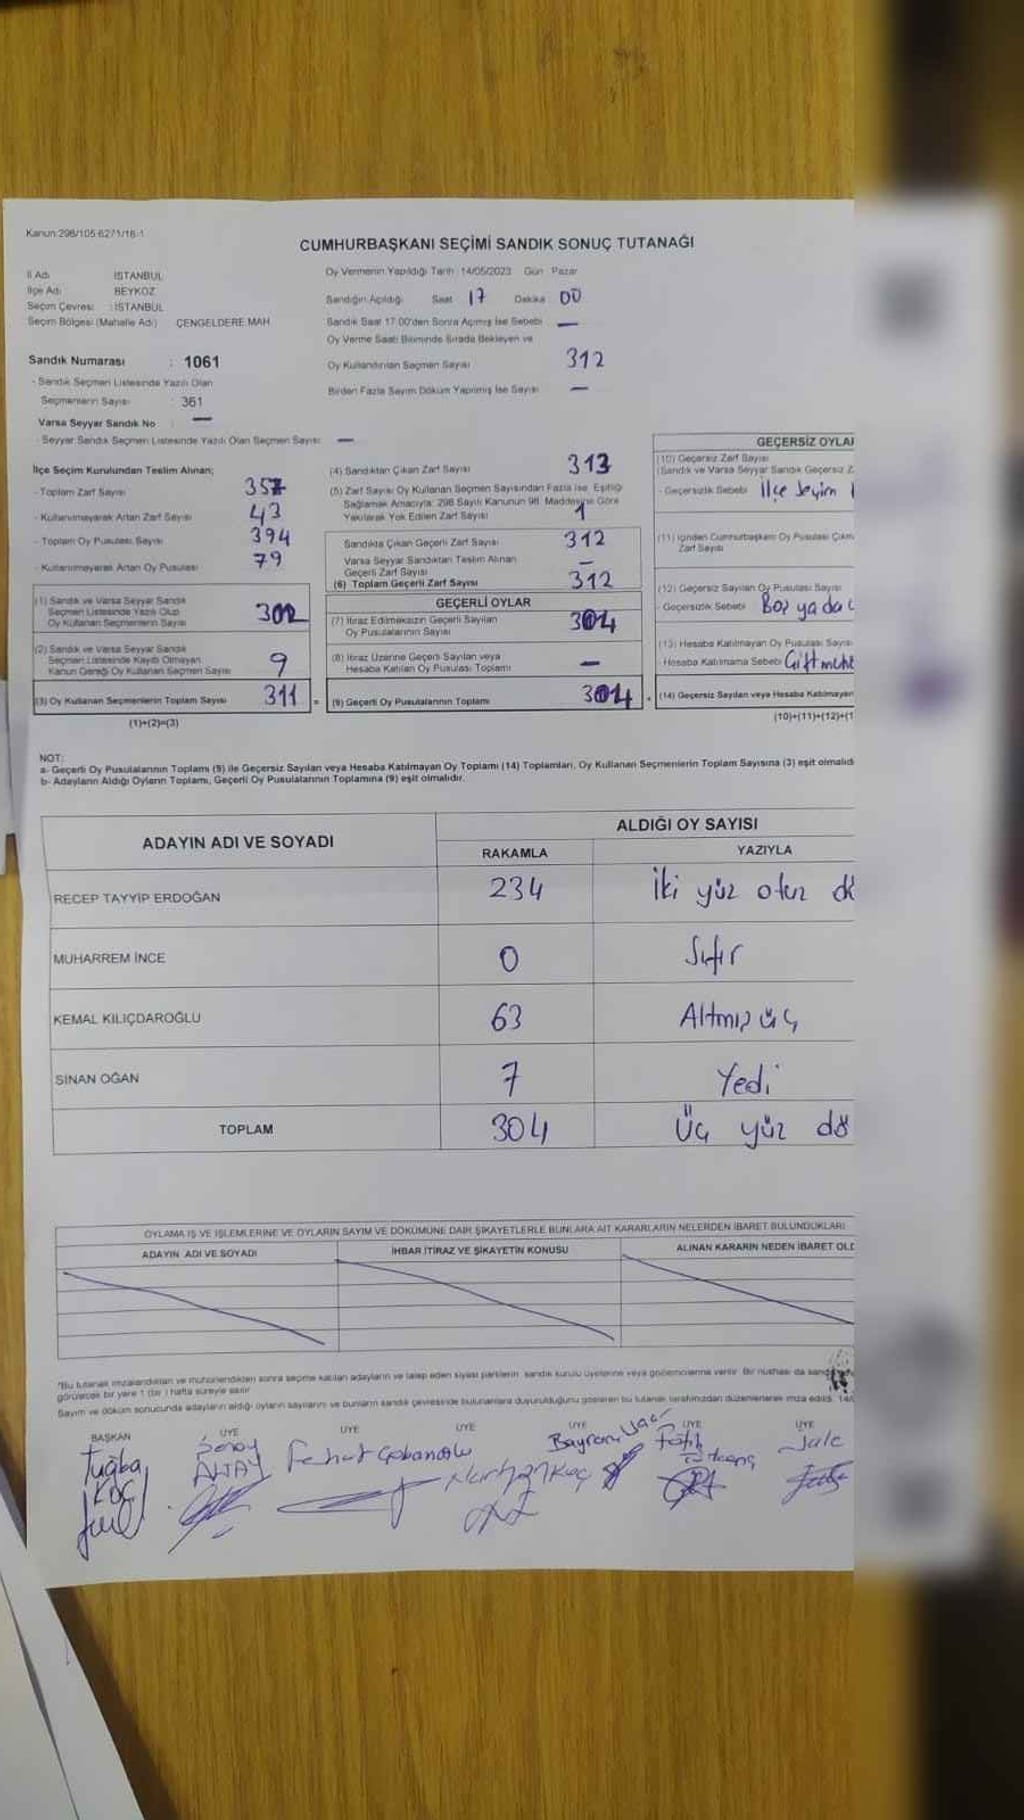 Kanun:298/105-6271/16-1
CUMHURBAŞKANI SEÇİMİ SANDIK SONUÇ TUTANAĞI
İl Adı İSTANBUL
İlçe Adı BEYKOZ
Seçim Çevresi : İSTANBUL
Seçim Bölgesi (Mahalle Adı) ÇENGELDERE MAH
Sandık Numarası : 1061
- Sandık Seçmen Listesinde Yazılı Olan
Seçmenlerin Sayısı : 361
Varsa Seyyar Sandık No : —
- Seyyar Sandık Seçmen Listesinde Yazılı Olan Seçmen Sayısı: —
Oy Vermenin Yapıldığı Tarih : 14/05/2023 Gün Pazar
Sandığın Açıldığı Saat 17 Dakika 00
Sandık Saat 17:00'den Sonra Açılmış İse Sebebi —
Oy Verme Saati Bitiminde Sırada Bekleyen ve
Oy Kullandırılan Seçmen Sayısı 312
Birden Fazla Sayım Döküm Yapılmış İse Sayısı —
İlçe Seçim Kurulundan Teslim Alınan;
- Toplam Zarf Sayısı 357
- Kullanılmayarak Artan Zarf Sayısı 43
- Toplam Oy Pusulası Sayısı 394
- Kullanılmayarak Artan Oy Pusulası 79
(1) Sandık ve Varsa Seyyar Sandık
Seçmen Listesinde Yazılı Olup
Oy Kullanan Seçmenlerin Sayısı 302
(2) Sandık ve Varsa Seyyar Sandık
Seçmen Listesinde Kayıtlı Olmayan
Kanun Gereği Oy Kullanan Seçmen Sayısı 9
(3) Oy Kullanan Seçmenlerin Toplam Sayısı 311 =
(1)+(2)=(3)
(4) Sandıktan Çıkan Zarf Sayısı 313
(5) Zarf Sayısı Oy Kullanan Seçmen Sayısından Fazla İse, Eşitliği
Sağlamak Amacıyla; 298 Sayılı Kanunun 98. Maddesine Göre
Yakılarak Yok Edilen Zarf Sayısı 1
Sandıkta Çıkan Geçerli Zarf Sayısı 312
Varsa Seyyar Sandıktan Teslim Alınan
Geçerli Zarf Sayısı —
(6) Toplam Geçerli Zarf Sayısı 312
GEÇERLİ OYLAR
(7) İtiraz Edilmeksizin Geçerli Sayılan
Oy Pusulalarının Sayısı 304
(8) İtiraz Üzerine Geçerli Sayılan veya
Hesaba Katılan Oy Pusulası Toplamı —
(9) Geçerli Oy Pusulalarının Toplamı 304
GEÇERSİZ OYLA
(10) Geçersiz Zarf Sayısı
(Sandık ve Varsa Seyyar Sandık Geçersiz Z
- Geçersizlik Sebebi İlçe Seçim
(11) İçinden Cumhurbaşkanı Oy Pusulası Çıkm
Zarf Sayısı
(12) Geçersiz Sayılan Oy Pusulası Sayısı
- Geçersizlik Sebebi Boş ya da
(13) Hesaba Katılmayan Oy Pusulası Sayısı
- Hesaba Katılmama Sebebi Çift
(14) Geçersiz Sayılan veya Hesaba Katılmayan
(10)+(11)+(12)+(1
NOT:
a- Geçerli Oy Pusulalarının Toplamı (9) ile Geçersiz Sayılan veya Hesaba Katılmayan Oy Toplamı (14) Toplamları, Oy Kullanan Seçmenlerin Toplam Sayısına (3) eşit olmalıdı
b- Adayların Aldığı Oyların Toplamı, Geçerli Oy Pusulalarının Toplamına (9) eşit olmalıdır.
ADAYIN ADI VE SOYADI ALDIĞI OY SAYISI
RAKAMLA YAZIYLA
RECEP TAYYİP ERDOĞAN 234 İki yüz otuz dö
MUHARREM İNCE 0 Sıfır
KEMAL KILIÇDAROĞLU 63 Altmış üç
SİNAN OĞAN 7 Yedi
TOPLAM 304 Üç yüz dö
OYLAMA İŞ VE İŞLEMLERİNE VE OYLARIN SAYIM VE DÖKÜMÜNE DAİR ŞİKAYETLERLE BUNLARA AİT KARARLARIN NELERDEN İBARET BULUNDUKLARI
ADAYIN ADI VE SOYADI İHBAR İTİRAZ VE ŞİKAYETİN KONUSU ALINAN KARARIN NEDEN İBARET OLD
"Bu tutanak imzalandıktan ve mühürlendikten sonra seçime katılan adayların ve talep eden siyasi partilerin sandık kurulu üyelerine veya gözlemcilerine verilir. Bir nüshası da sand
görülecek bir yere 1 (bir ) hafta süreyle asılır
Sayım ve döküm sonucunda adayların aldığı oyların sayılarını ve bunların sandık çevresinde bulunanlara duyurulduğunu gösteren bu tutanak tarafımızdan düzenlenerek imza edildi. 14/
BAŞKAN ÜYE ÜYE ÜYE ÜYE ÜYE ÜYE
Tuğba KOÇ
Şenay ALTAY
Ferhat Çobanoğlu
Nurhan Koç
Bayram
Fatih
Jale